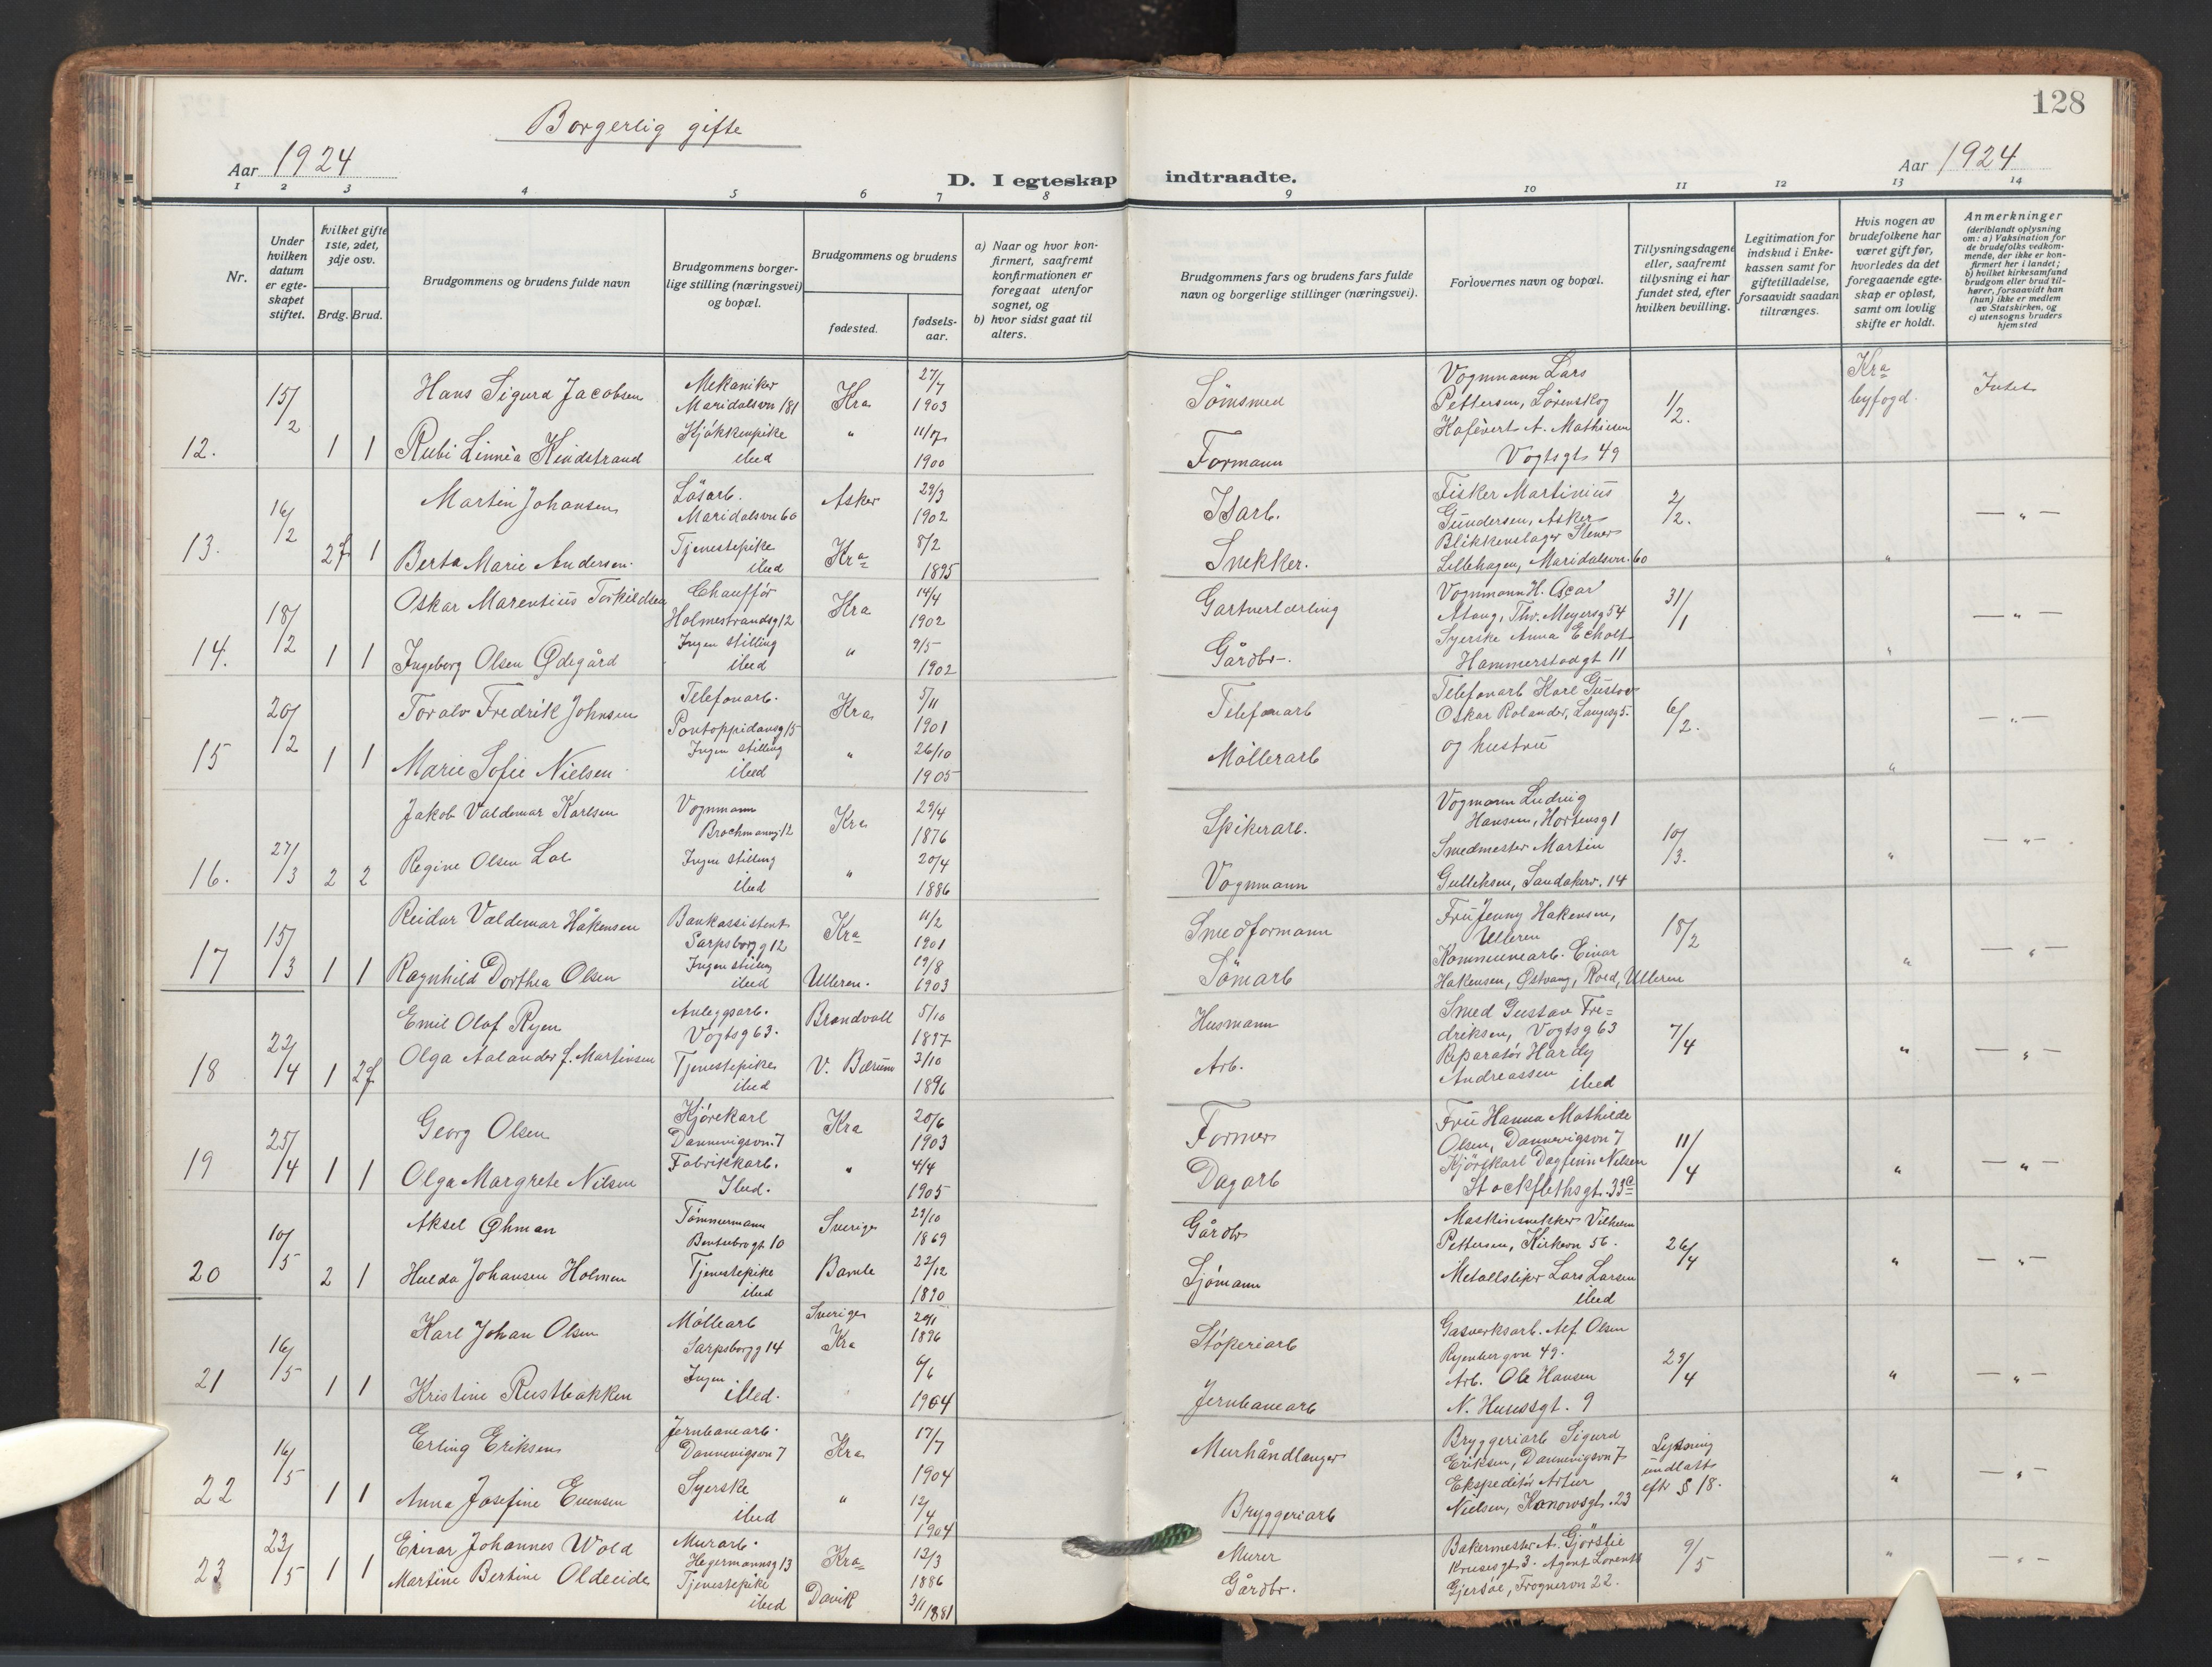 128
Borgerlig gifte
Aar 1924
D. I egteskap indtraadte.
Aar 1924
1 2 3 4 5 6 7 8 9 10 11 12 13 14
Nr.
Under hvilken datum er egteskapet stiftet.
hvilket gifte 1ste, 2det, 3dje osv.
Brdg. Brud.
Brudgommens og brudens fulde navn
Brudgommens borgerlige stilling (næringsvei) og bopæl.
Brudgommens og brudens
fødested.
fødselsaar.
a) Naar og hvor konfirmert, saafremt konfirmationen er foregaat utenfor sognet, og
b) hvor sidst gaat til alters.
Brudgommens fars og brudens fars fulde navn og borgerlige stillinger (næringsvei).
Forlovernes navn og bopæl.
Tillysningsdagene eller, saafremt tillysning ei har fundet sted, efter hvilken bevilling.
Legitimation for indskud i Enkekassen samt for giftetilladelse, forsaavidt saadan tiltrænges.
Hvis nogen av brudefolkene har været gift før, hvorledes da det foregaaende egteskap er opløst, samt om lovlig skifte er holdt.
Anmerkninger (deriblandt oplysning om: a) Vaksination for de brudefolks vedkommende, der ikke er konfirmert her i landet; b) hvilket kirkesamfund brudgom eller brud tilhører, forsaavidt han (hun) ikke er medlem av Statskirken, og c) utensogns bruders hjemsted
12. 15/2 1 1
Hans Sigurd Jacobsen Mekaniker Maridalsvn 181 Kra 27/7 1903 Sömsmed
Rubi Linnèa Kindstrand Kjökkenpike ibid " 11/7 1900 Formann
Vognmann Lars Pettersen, Lörenskog
A. Mathiesen Vogtsgt 49
1/2. Kra byfogd. Intet
13. 16/2 2f 1
Martin Johansen Lösarb. Maridalsvn 60 Asker 29/3 1902 Isarb.
Berta Marie Andersen. Tjenestepike ibid Kra 8/2 1895 Snekker.
Fisker Martinius Gundersen, Asker
Blikkenslager Stener Lillehagen, Maridalsvn. 60
2/2. " — " —
14. 18/2 1 1
Oskar Marentius Torkildsen Chauffør Holmestrandsg 12 Kra 14/4 1902 Gartnerlærling
Ingeborg Olsen Ødegård Ingen stilling ibid " 9/5 1902 Gårdbr.
Vognmann H. Oscar Thv. Meyersg 54
Syerske Anna Echolt Hammerstadgt 11
31/1 " — " —
15 20/2 1 1
Toralv Fredrik Johnsen Telefonarb. Pontoppidansg 15 Kra 5/11 1901 Telefonarb
Marie Sofie Nielsen Ingen stilling ibid " 26/10 1905 Möllerarb
Telefonarb Karl Gustav Oskar Rolander, Langesg 5. og hustru
6/2. " — " —
16. 27/3 2 2
Jakob Valdemar Karlsen Vognmann Brochmannsg 12 Kra 29/4 1876 Spikerarb.
Regine Olsen Lae Ingen stilling ibid " 20/4 1886 Vognmann
Vognmann Ludvig Hansen, Hortensg 1
Smedmester Martin Gulliksen, Sandakerv. 14
10/3. " — " —
17 15/3 1 1
Reidar Valdemar Håkensen Bankassistent Sarpsborg g 12 Kra 11/2 1901 Smedformann
Ragnhild Dorthea Olsen Ingen stilling ibid Ulleren. 19/8 1903 Sömarb
Fru Jenny Hakensen, Ulleren
Kommunearb. Einar Hakensen, Østvang, Roed, Ullern
18/2 " — " —
18 22/4 1 2f
Emil Olaf Ryen Anleggsarb. Vogtsg 63. Brandvall 5/10 1897 Husmann
Olga Aalander f. Martinsen Tjenestepike ibid V. Bærum 3/10 1896 Arb.
Smed Gustav Fredriksen, Vogtsg 63
Reparatør Hardy Andreassen ibid
7/4 " — " —
19 25/4 1 1
Georg Olsen Kjörekarl Dannevigsvn. 7 Kra 20/6 1903 Former
Olga Margrete Nilsen Fabrikkarb. Ibid. " 4/4 1905 Dagarb
Fru Hanna Mathilde Olsen, Dannevigsvn 7
Kjörekarl Dagfinn Nilsen Stockflethsgt. 33c
11/4 " — " —
20 10/5 2 1
Aksel Øhman Tömmermann Bentsebrogt 10 Sverige 29/10 1869 Gårdbr
Hulda Johansen Holmen Tjenestepike ibid Bamle 22/12 1890 Sjömann
Maskinsnekker Vilhelm Pettersen, Kirkevn 56.
Metallsliper Lars Larsen ibid
26/4 " — " —
21 16/5 1 1
Karl Johan Olsen Möllearb Sarpsborgg 14 Sverige 1896 Stöperiarb
Kristine Rustbakken Ingen ibid. Kra 6/6 1904 Jernbanearb
Gasverksarb. Alf Olsen Ryenbergvn 49.
Arb. Ole Hansen N. Huusgt. 9
29/4 " — " —
22 16/5 1 1
Erling Eriksen Jernbanearb. Dannevigsvn 7 Kra 17/7 1904 Murhåndlanger
Anna Josefine Evensen Syerske ibid " 12/4 1904 Bryggeriarb
Bryggeriarb Sigurd Eriksen, Dannevigsvn 7
Ekspeditör Artur Nielsen, Kanowsgt. 23
Lysning undlatt eftr § 18. " — " —
23 23/5 1 1
Einar Johannes Wold Murarb. Hegermannsg 13 Kra 12/3 1886 Murer
Martine Bertine Oldeeide Tjenestepike ibid Davik 3/11 1881 Gårdbr.
Bakermester A. Gjörslie Krusesgt 3. Agent Lorents Gjersöe, Frognervn 22.
9/5 " — " —